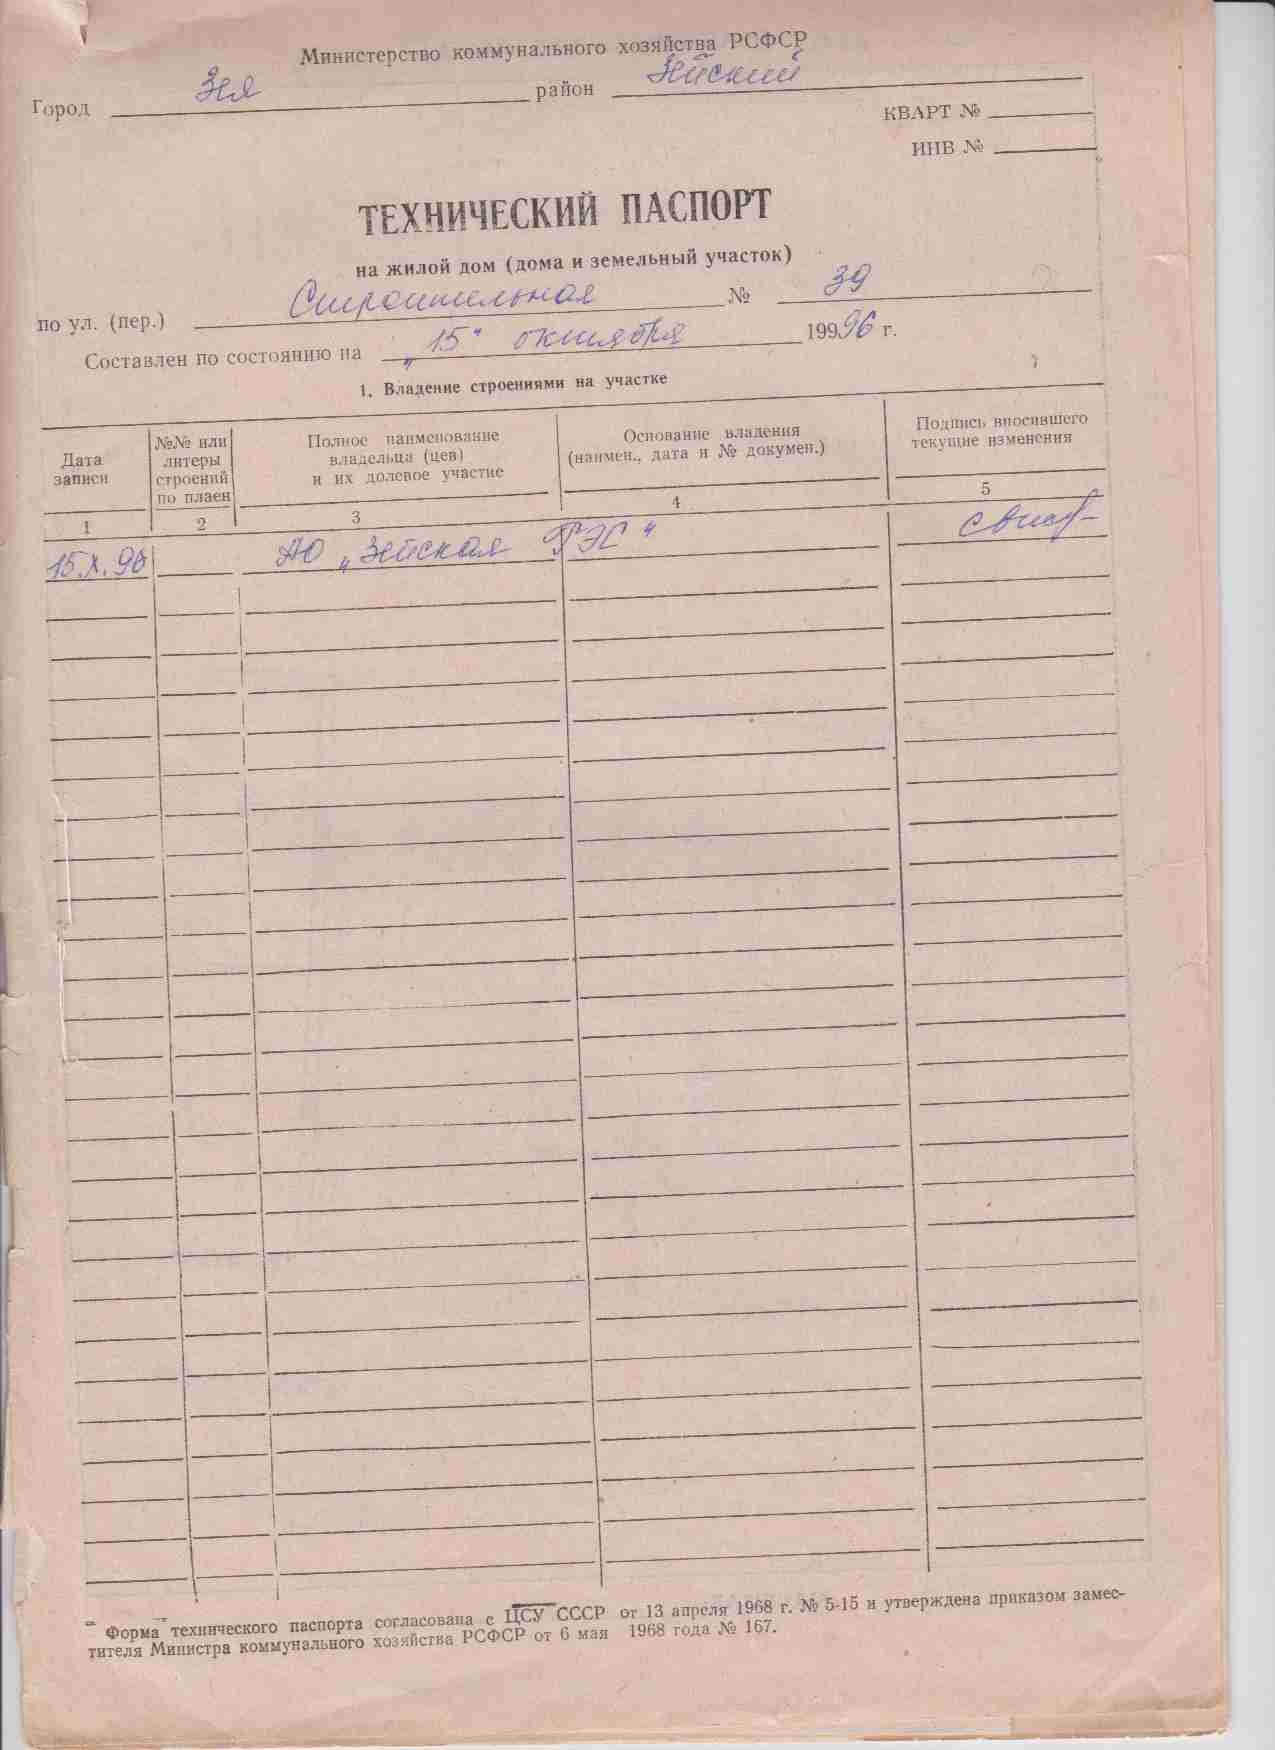 Министерство коммунального хозяйства РСФСР
Город Зея район Зейский
КВАРТ №
ИНВ №
ТЕХНИЧЕСКИЙ ПАСПОРТ
на жилой дом (дома и земельный участок)
по ул. (пер.) Строительная № 39
Составлен по состоянию на „15“ октября 19996 г.
1. Владение строениями на участке
Дата записи
№№ или литеры строений по плаен
Полное наименование владельца (цев) и их долевое участие
Основание владения (наимен., дата и № докумен.)
Подпись вносившего текущие изменения
1 2 3 4 5
15.X.96 АО „Зейская ГЭС“
Форма технического паспорта согласована с ЦСУ СССР от 13 апреля 1968 г. № 5-15 и утверждена приказом замес-
тителя Министра коммунального хозяйства РСФСР от 6 мая 1968 года № 167.